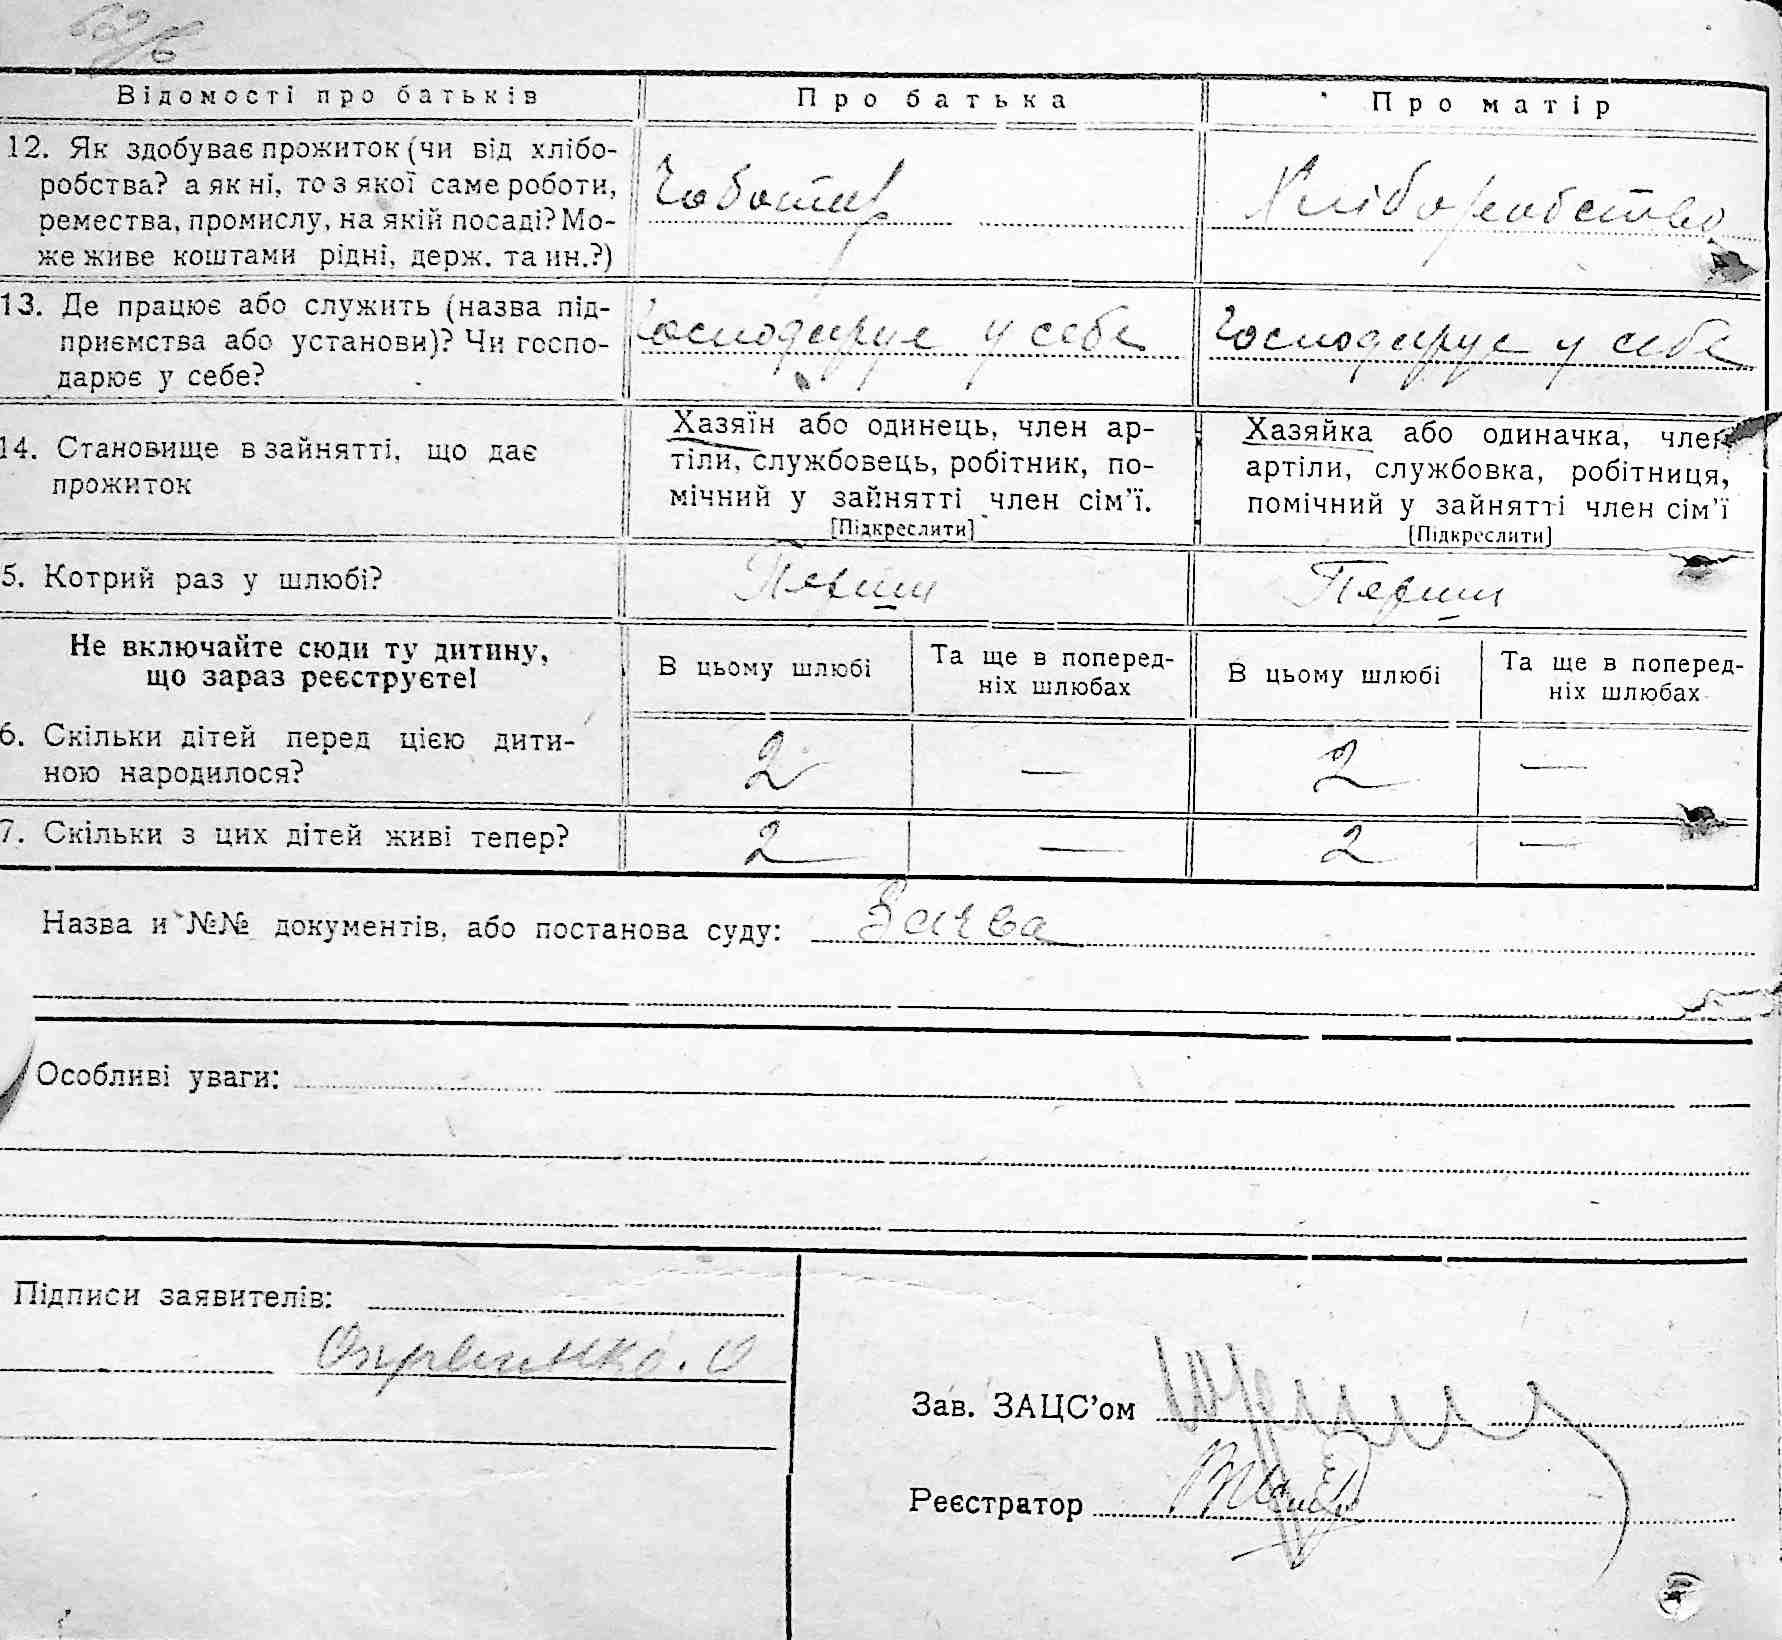 Відомості про батьків Про батька Про матір
12. Як здобуває прожиток (чи від хлібо-
робства? а як ні, то з якої саме роботи,
ремества, промислу, на якій посаді? Мо-
же живе коштами рідні, держ. та ин.?)
Чоботар
Хліборобство
13. Де працює або служить (назва під-
приємства або установи)? Чи госпо-
дарює у себе?
Господарує у себе
Господарує у себе
14. Становище в зайнятті, що дає
прожиток
Хазяїн або одинець, член ар-
тіли, службовець, робітник, по-
мічний у зайнятті член сім’ї.
[Підкреслити]
Хазяйка або одиначка, член
артіли, службовка, робітниця,
помічний у зайнятті член сім’ї
[Підкреслити]
5. Котрий раз у шлюбі?
Перши
Перши
Не включайте сюди ту дитину,
що зараз реєструєте!
В цьому шлюбі
Та ще в поперед-
ніх шлюбах
В цьому шлюбі
Та ще в поперед-
ніх шлюбах
6. Скільки дітей перед цією дити-
ною народилося?
2 — 2 —
7. Скільки з цих дітей живі тепер?
2 — 2 —
Назва и №№ документів, або постанова суду: Заява
Особливі уваги:
Підписи заявителів:
Зав. ЗАЦС’ом
Реєстратор